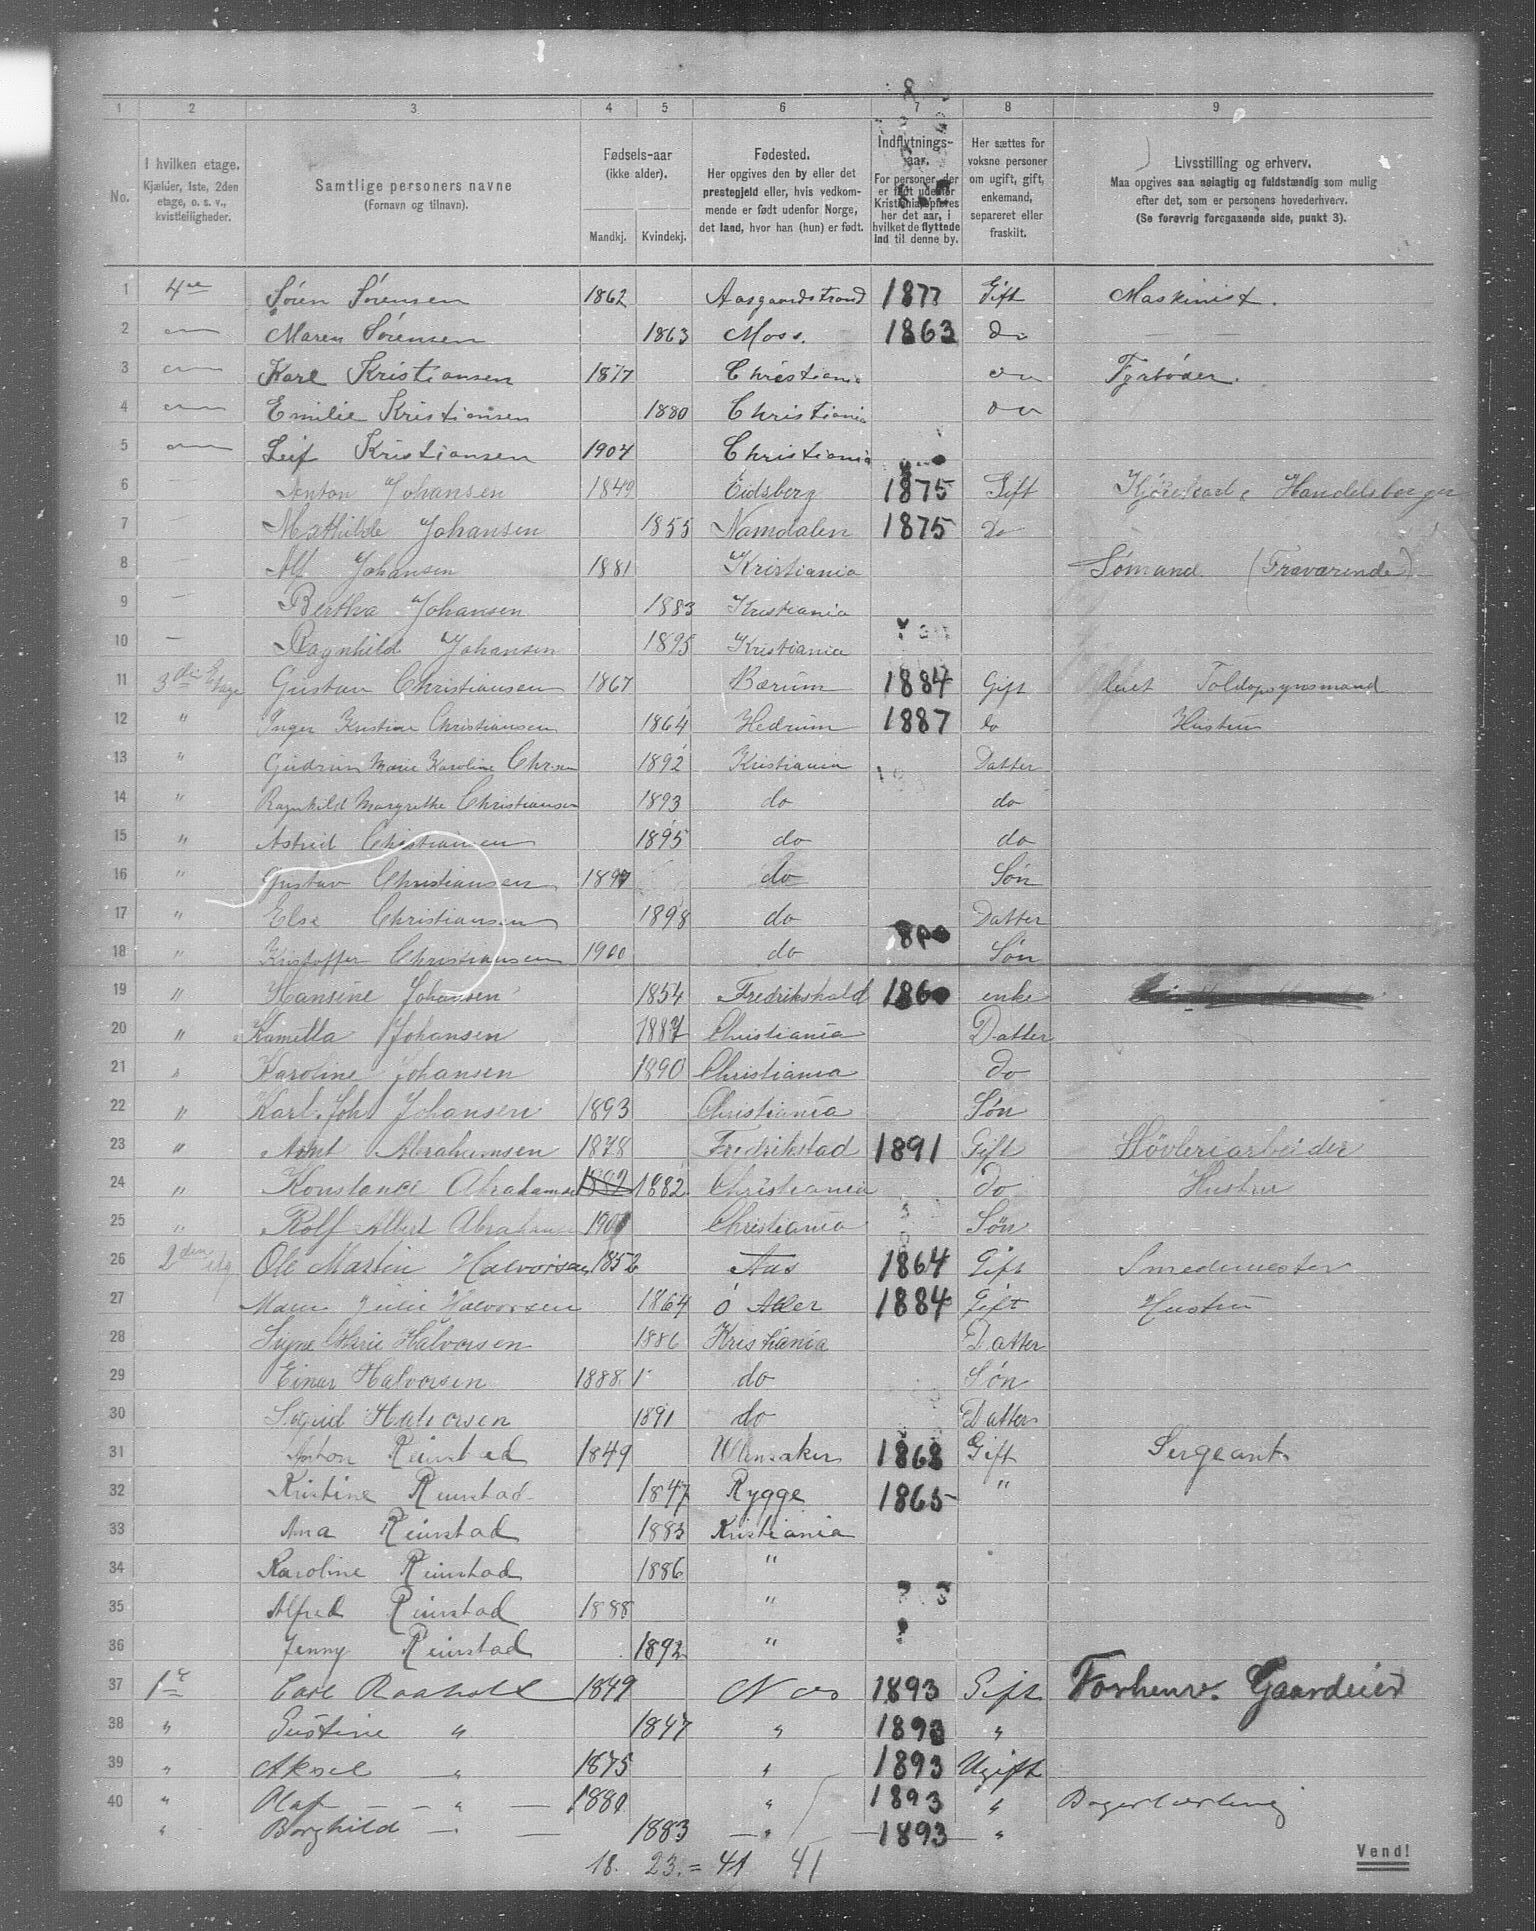 1 2 3 4 5 6 7 8 9
No.
I hvilken etage.
Kjælder, 1ste, 2den
etage, o. s. v.,
kvistleiligheder.
Samtlige personers navne
(Fornavn og tilnavn).
Fødsels-aar
(ikke alder).
Mandkj. Kvindekj.
Fødested.
Her opgives den by eller det
prestegjeld eller, hvis vedkom-
mende er født udenfor Norge,
det land, hvor han (hun) er født.
Indflytnings-
aar.
For personer, der
er født udenfor
Kristiania, opføres
her det aar, i
hvilket de flyttede
ind til denne by.
Her sættes for
voksne personer
om ugift, gift,
enkemand,
separeret eller
fraskilt.
Livsstilling og erhverv.
Maa opgives saa nøiagtig og fuldstændig som mulig
efter det, som er personens hovederhverv.
(Se forøvrig foregaaende side, punkt 3).
1 4de Søren Sørensen 1862 Aasgaardstrand 1877 Gift Maskinist.
2 Maren Sørensen 1863 Moss. 1863 do
3 Karl Kristiansen 1877 Christiania do Fyrbøder.
4 Emilie Kristiansen 1880 Christiania do
5 Leif Kristiansen 1904 Christiania
6 Anton Johansen 1849 Eidsberg 1875 Gift Kjørekarl, Handelsborger
7 Mathilde Johansen 1855 Namdalen 1875 Do
8 Alf Johansen 1881 Kristiania Sømand (Fraværende)
9 Bertha Johansen 1883 Kristiania
10 Ragnhild Johansen 1895 Kristiania
11 3die Etage Gustav Christiansen 1867 Bærum 1884 Gift Toldopsynsmand
12 " Inger Kristine Christiansen 1864 Hedrum 1887 do Hustru
13 " Gudrun Marie Karoline Chrsen 1892 Kristiania Datter
14 " Ragnhild Margrethe Christiansen 1893 do do
15 " Astrid Christiansen 1895 do do
16 " Gustav Christiansen 1897 do Søn
17 " Else Christiansen 1898 do Datter
18 " Kristoffer Christiansen 1900 do Søn
19 " Hansine Johansen 1854 Fredrikshald 1860 enke
20 " Kamilla Johansen 1887 Christiania Datter
21 " Karoline Johansen 1890 Christiania Do
22 " Karl Joh Johansen 1893 Christiania Søn
23 " Arnt Abrahamsen 1878 Fredrikstad 1891 Gift Høvleriarbeider
24 " Konstance Abrahamsen 1882 1882 Christiania do Hustru
25 " Rolf Albert Abrahamsen Christiania Søn
26 2den etg Ole Martin Halvorsen 1852 Aas 1864 Gift Smedemester
27 Maren Julie Halvorsen 1864 Ø Aker 1884 Gift Hustru
28 Signe Halvorsen 1886 Kristiania Datter
29 Einar Halvorsen 1888 do Søn
30 Sigrid Halvorsen 1891 do Datter
31 Anton Reinstad 1849 Ullensaker 1868 Gift Sergeant
32 Kristine Reinstad 1847 Rygge 1865 "
33 Ana Reinstad 1883 Kristiania
34 Karoline Reinstad 1886 "
35 Alfred Reinstad 1888 "
36 Jenny Reinstad 1892 "
37 1e Carl Raaholt 1849 Næs 1893 Gift Forhenv. Gaardeier
38 " Gustine " 1847 " 1893 "
39 " Aksel " 1875 " 1893 Ugift
40 " Olaf " 1880 " 1893 " Bagerlærling
" Borghild 1883 " 1893 "
18. 23. = 41 41
Vend!